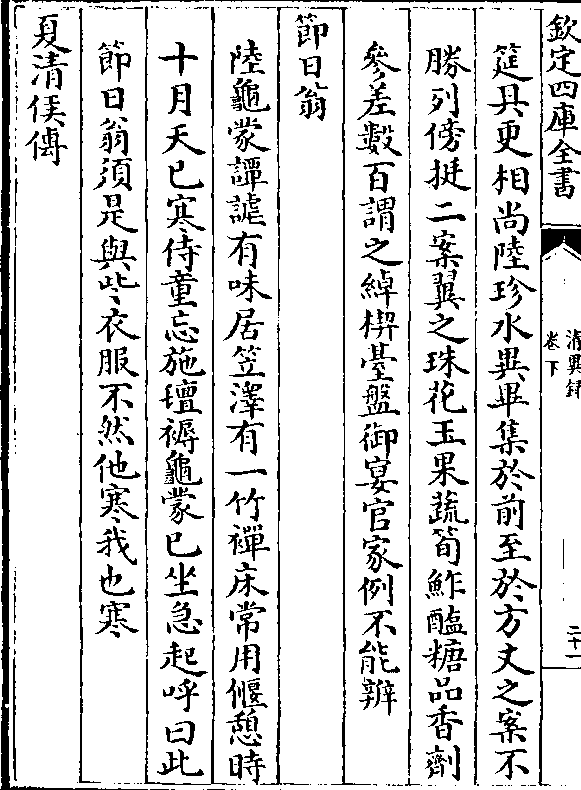 欽定四庫全書
清異録
卷下
二十一
筵具更相尚陸珍水異畢集於前至於方丈之案不
勝列傍挺二案翼之珠花玉果蔬筍鮓醢糖品香劑
參差數百謂之綽楔臺盤御宴官家例不能辨
節日翁
陸龜蒙譚謔有味居笠澤有一竹禪床常用偃憩時
十月天已寒侍童忘施氊褥龜蒙已坐急起呼曰此
節日翁須是與些衣服不然他寒我也寒
夏清侯傳